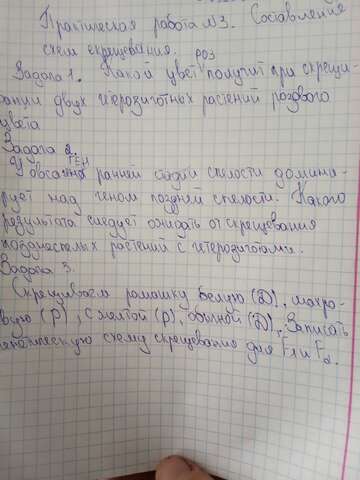 Практическая работа №3. Составление
схем скрещивания.
роз
Задача 1. Какой цвет получит при скрещи-
вании двух гетерозиготных растений розового
цвета
Задача 2.
ген
У овса ранней спелости домини-
рует над геном поздней спелости. Какого
результата следует ожидать от скрещивания
позднеспелых растений с гетерозиготами.
Задача 3.
Скрещиваем ромашку белую (D), махро-
вую (P), с желтой (p), обычной (D). Записать
схему скрещивания для F1 и F2.